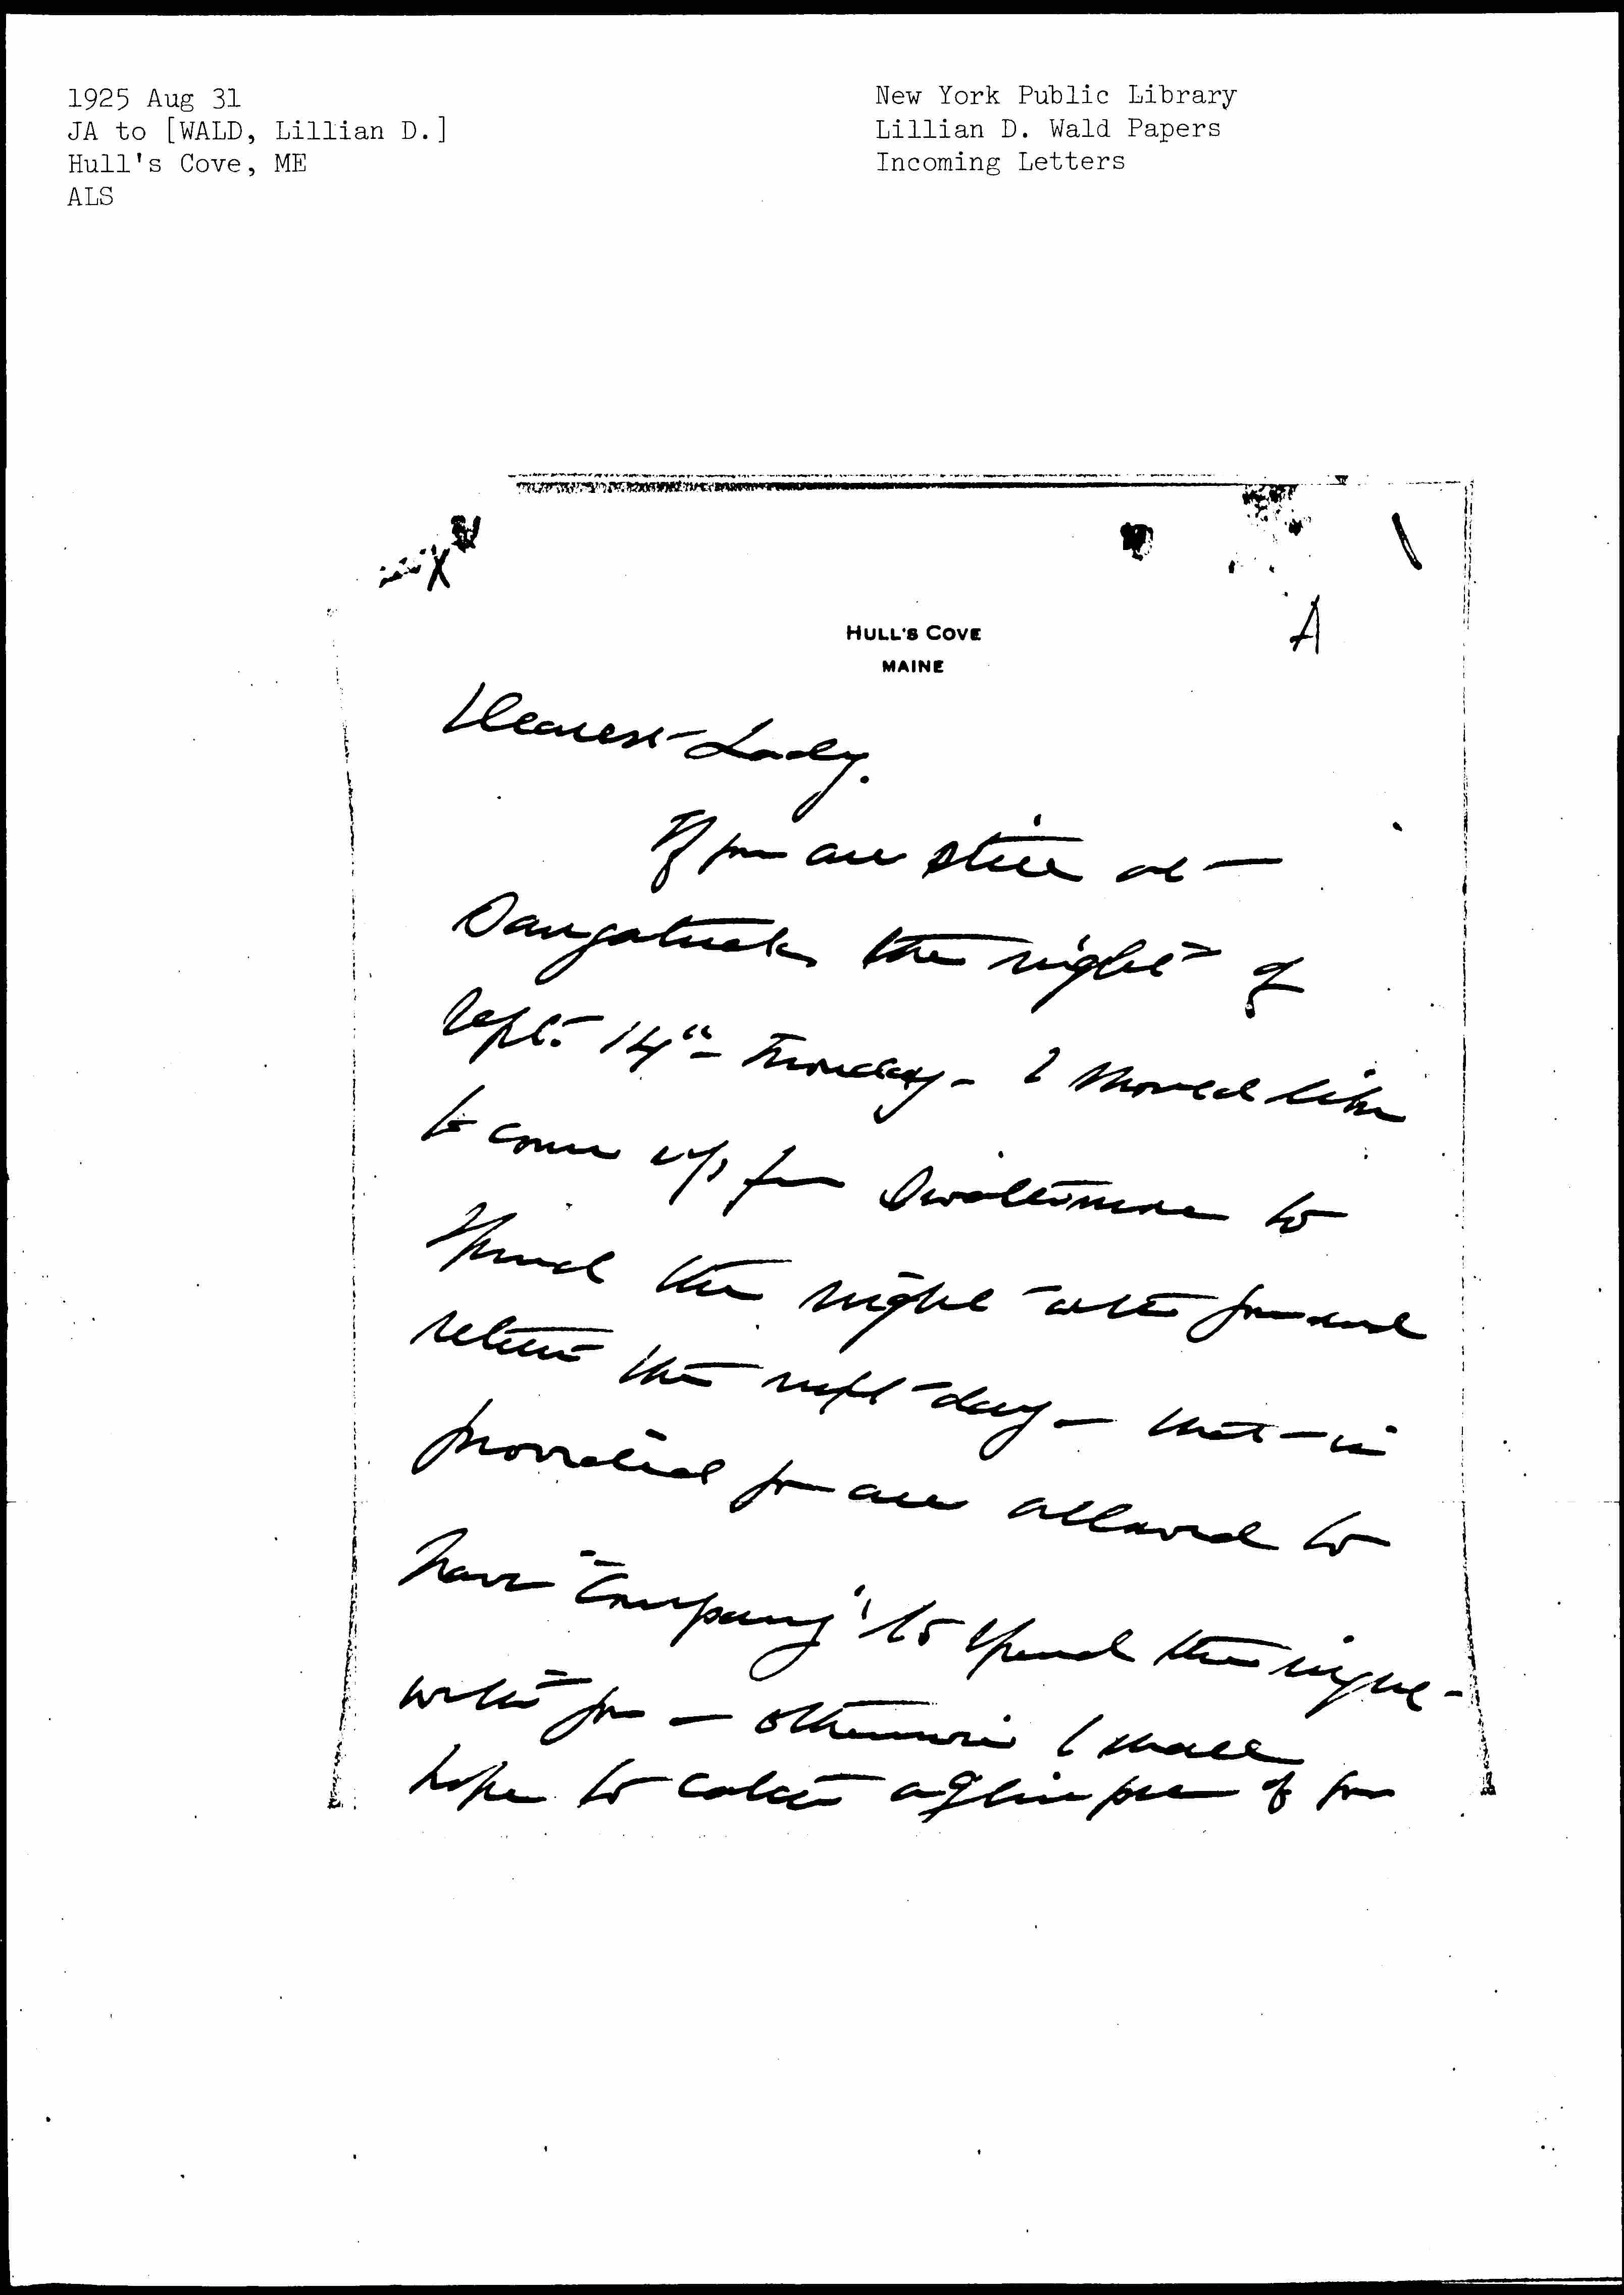 1925 Aug 31
JA to [WALD, Lillian D.]
Hull's Cove, ME
ALS
New York Public Library
Lillian D. Wald Papers
Incoming Letters
X
A
HULL'S COVE
MAINE
Dearest Lady.
If you are still at
Saugatuck the night of
Sept. 14" - Monday - I should like
to come up from to
spend the night with you and
return the next day - that is
provided you are allowed to
have "company" to spend the night
with you - otherwise I shall
hope to catch a glimpse of you